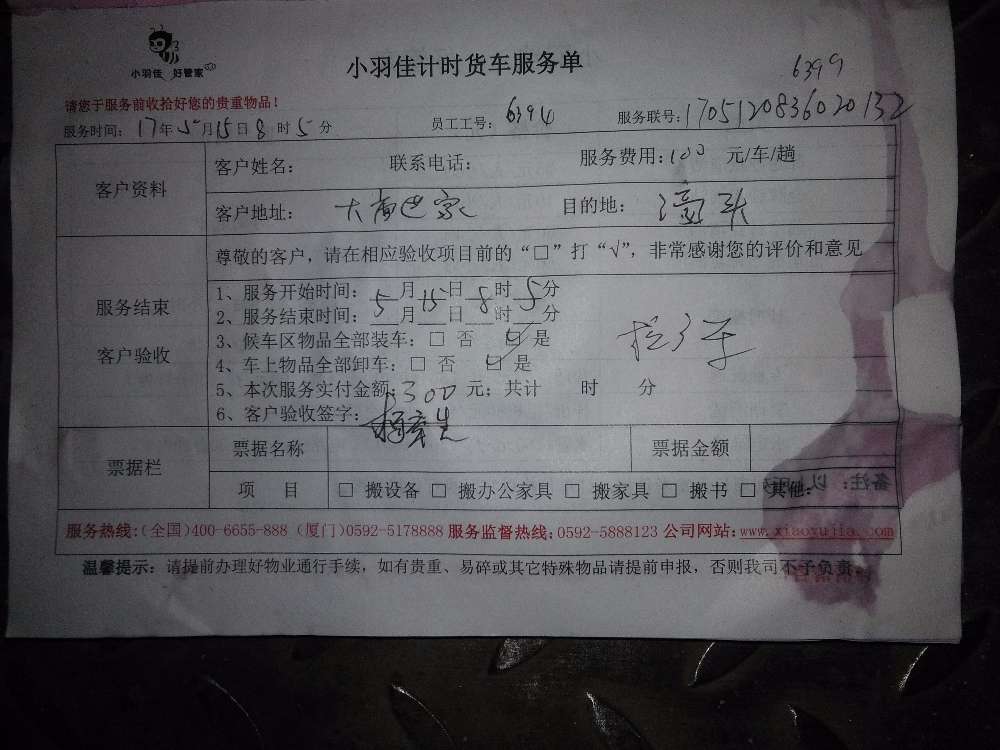 小羽佳 好管家
小羽佳计时货车服务单
6399
请您于服务前收拾好您的贵重物品!
服务时间: 17年5月15日8时5分 员工工号: 6394 服务联号: 1705120836020132
客户资料
客户姓名: 联系电话: 服务费用:100 元/车/趟
客户地址: 目的地:
服务结束
客户验收
尊敬的客户,请在相应验收项目前的“□”打“√”,非常感谢您的评价和意见
1、服务开始时间: 5月15日8时5分
2、服务结束时间: 月 日 时 分
3、候车区物品全部装车: □ 否 □ 是
4、车上物品全部卸车: □ 否 □ 是
5、本次服务实付金额: 300 元; 共计 时 分
6、客户验收签字:
拉3车
票据栏
票据名称 票据金额
项 目 □ 搬设备 □ 搬办公家具 □ 搬家具 □ 搬书 □ 其他:
备注: 以
服务热线:(全国)400-6655-888 (厦门)0592-5178888 服务监督热线:0592-5888123 公司网站:www.xiaoyujia.com
温馨提示: 请提前办理好物业通行手续,如有贵重、易碎或其它特殊物品请提前申报,否则我司不予负责